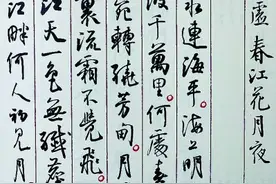 虛 春江花月夜
水連海平海上明
波千萬里何處春
宛轉繞芳甸月
裏流霜不覺飛
江天一色無纖塵
江畔何人初見月